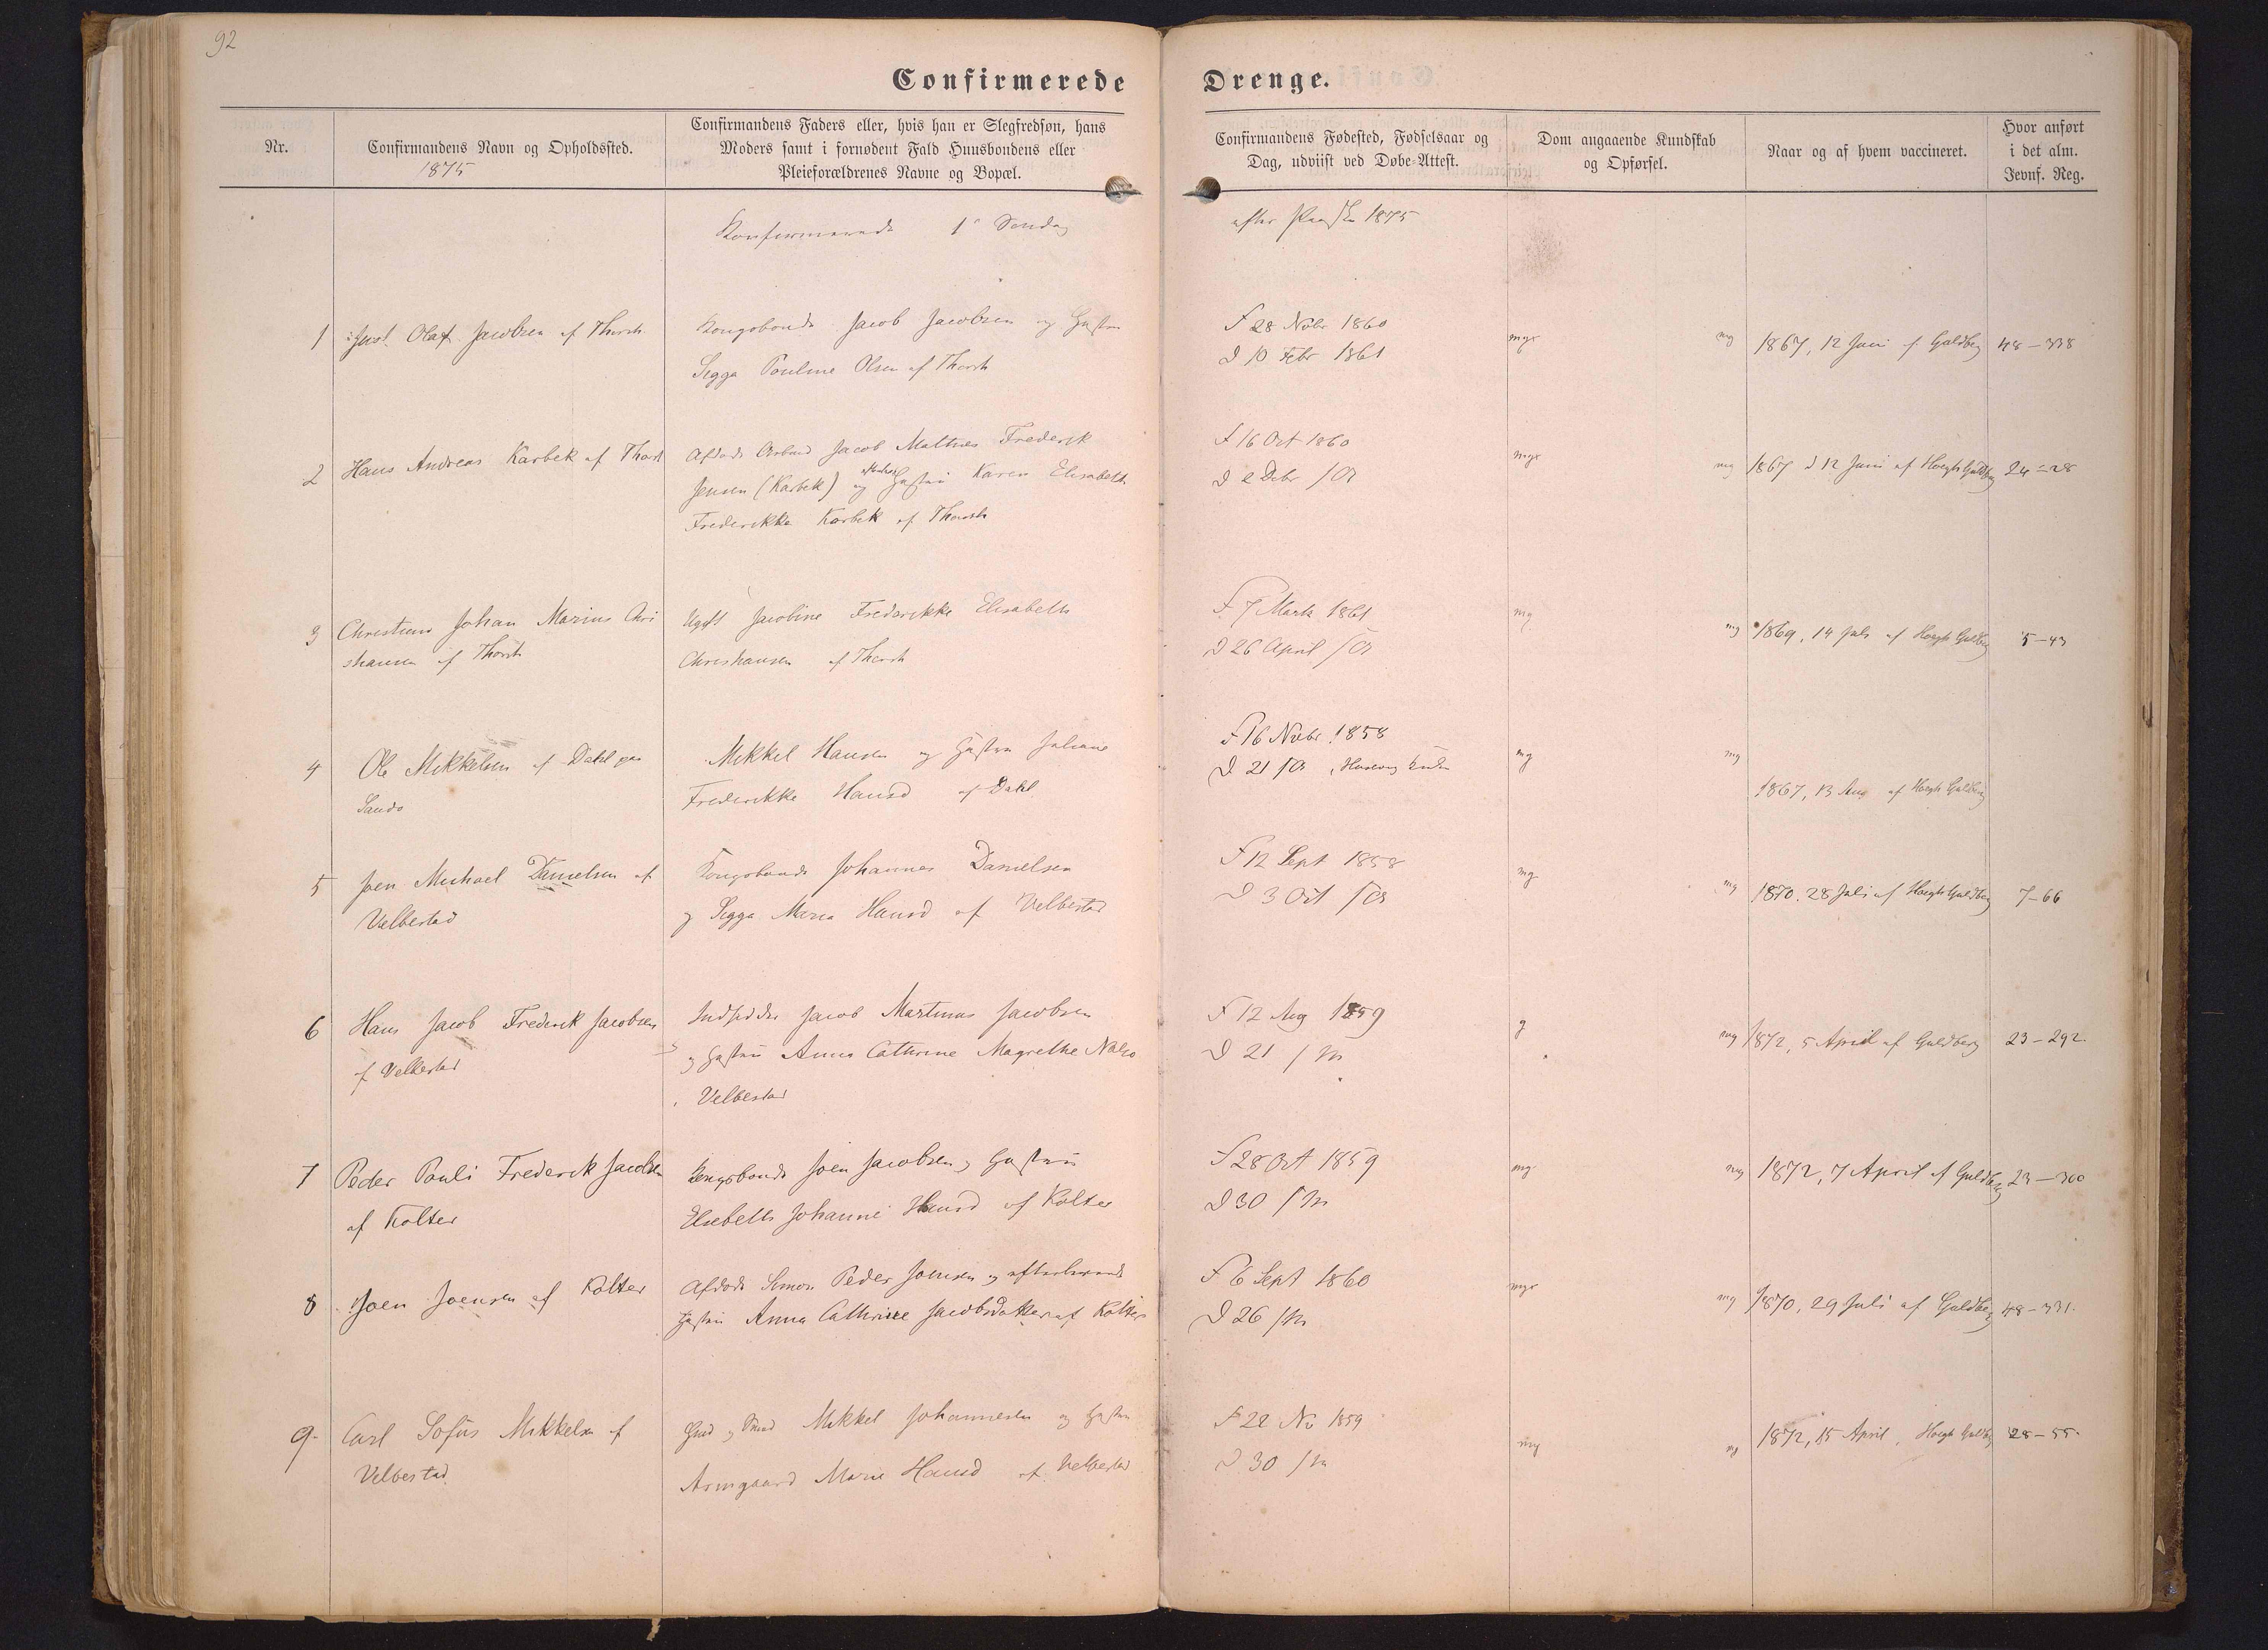 92
Confirmerede Drenge.
Nr.
Confirmandens Navn og Opholdssted.
1875
Confirmandens Faders eller, hvis han er Slegfredsøn, hans
Moders samt i fornødent Fald Huusbondens eller
Pleieforældrenes Navne og Bopæl.
Confirmandens Fødested, Fødselsaar og
Dag, udviist ved Døbe-Attest.
Dom angaaende Kundskab
og Opførsel.
Naar og af hvem vaccineret.
Hvor anført
i det alm.
Jevnf. Reg.
Konfirmerede 1e Søndag efter Paaske 1875
1 Just Olaf Jacobsen af Thorsh
Kongsbonde Jacob Jacobsen og Hustru
Sigga Pouline Olsen af Thorsh
F 28 Nvbr 1860
D 10 Febr 1861
mgx
mg
1867, 12 Juni af Guldberg
48-338
2 Hans Andreas Karbek af Thorsh
Afdøde Jacob Mathias Frederik
Jensen (Karbek) og Hustru Karen Elisabeth
Frederikke Karbek af Thorsh
F 16 Oct 1860
D 2 Debr /A
mgx
mg
1867 d 12 Juni af Høegh Guldberg
24-28
3 Christian Johan Marius Chri
stiansen af Thorsh
Ugift Jacobine Frederikke Elisabeth
Christiansen af Thorsh
F. 7 Marts 1861
D 26 April /A
mg
mg
1869, 14 Juli af Høegh Guldberg
5-43
4 Ole Mikkelsen af Dahl paa
Sandø
Mikkel Hansen og Hustru Juliane
Frederikke Hansd af Dahl
F 16 Nvbr. 1858
D 21 /A, Husevig Kirke
mg
mg
1867, 13 Aug af Høegh Guldberg
5 Joen Michael Danielsen af
Velbestad
Kongsbonde Johannes Danielsen
og Sigga Maria Hansd af Velbestad
F 12 Sept 1858
D 3 Oct /A
mg
mg
1870. 28 Juli af Høegh Guldberg
7-66
6 Hans Jacob Frederik Jacobsen
af Velbestad
Indsidder Jacob Martinus Jacobsen
og Hustru Anna Cathrine Magrethe
Velbestad
F 12 Aug 1859
D 21 /M
g
mg
1872, 5 April af Guldberg
23-292.
7 Peder Pauli Frederik Jacobsen
af Kolter
Kongsbonde Joen Jacobsen og Hustru
Elsebeth Johanne Hansd af Kolter
F 28 Oct 1859
D 30 /M
mg
mg
1872, 7 April af Guldberg
23-300
8 Joen Joensen af Kolter
Afdøde Simon Peder Joensen og efterlevende
Hustru Anna Cathrine Jacobsdatter af Kolter
F 6 Sept 1860
D 26 /M
mgx
mg
1870, 29 Juli af Guldberg
48-331.
9. Carl Sofus Mikkelsen af
Velbestad
Mikkel Johannesen og Hustru
Armgaard Marie Hansd af Velbestad
F 22 Nv 1859
D 30 /M
mg
mg
1872, 15 April, Høegh Guldberg
28-55.